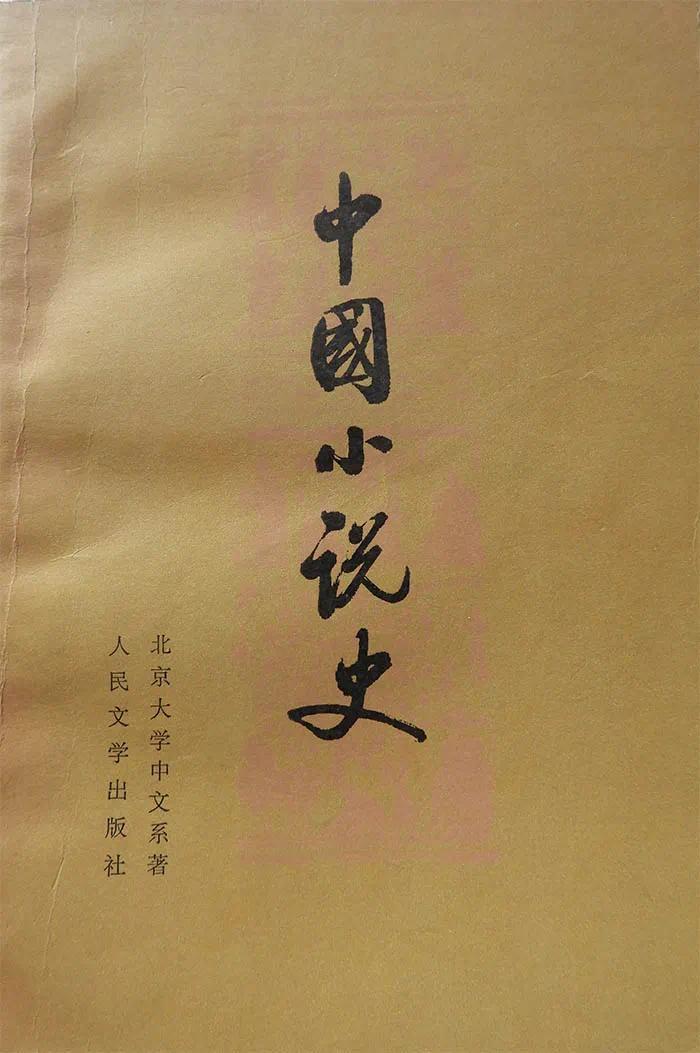 中國小说史
北京大学中文系著
人民文学出版社